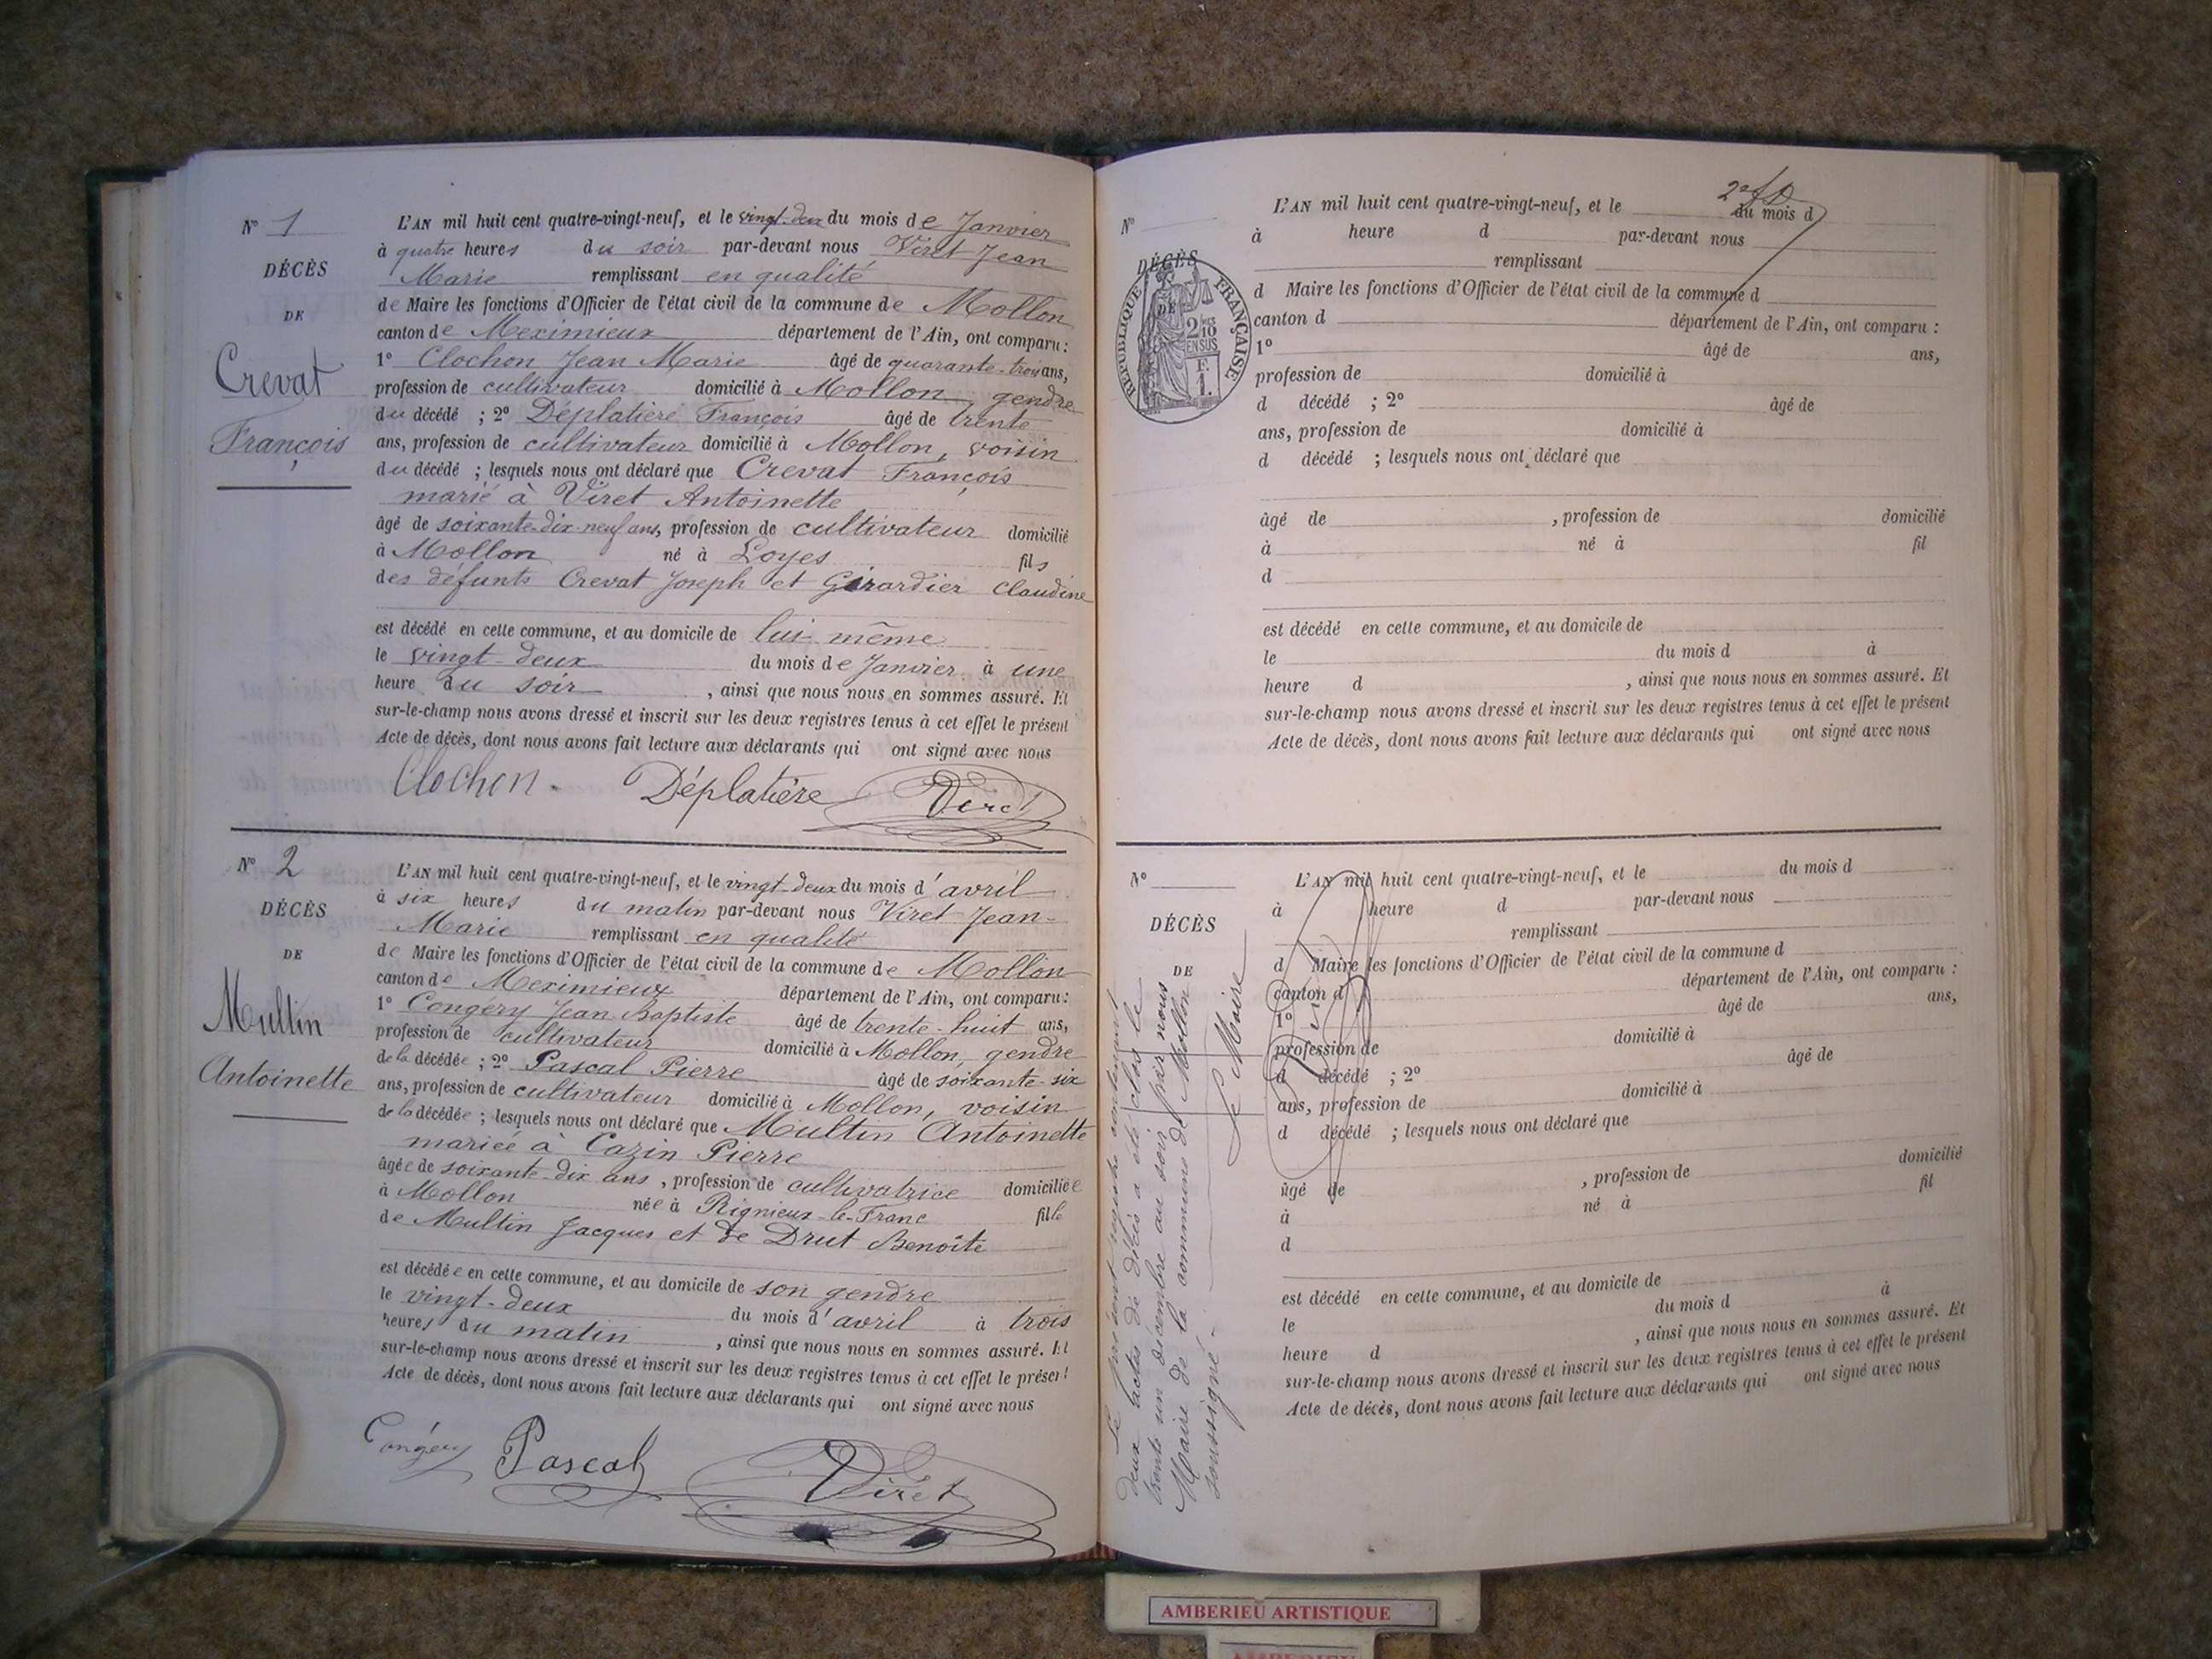 N° 1
DÉCÈS
DE
Crevat
François
L'AN mil huit cent quatre-vingt-neuf, et le vingt-deux du mois de Janvier
à quatre heures du soir par-devant nous Viret Jean
Marie remplissant en qualité
de Maire les fonctions d'Officier de l'état civil de la commune de Mollon
canton de Meximieux département de l'Ain, ont comparu :
1° Clochon Jean Marie âgé de quarante-trois ans,
profession de cultivateur domicilié à Mollon, gendre
du décédé ; 2° Déplatière François âgé de trente
ans, profession de cultivateur domicilié à Mollon, voisin
du décédé ; lesquels nous ont déclaré que Crevat François
marié à Viret Antoinette
âgé de soixante-dix-neuf ans, profession de cultivateur domicilié
à Mollon né à Loyes fils
des défunts Crevat Joseph et Girardier Claudine
est décédé en cette commune, et au domicile de lui-même
le vingt-deux du mois de Janvier à une
heure du soir, ainsi que nous nous en sommes assuré. Et
sur-le-champ nous avons dressé et inscrit sur les deux registres tenus à cet effet le présent
Acte de décès, dont nous avons fait lecture aux déclarants qui ont signé avec nous
Clochon. Déplatière Viret
N° 2
DÉCÈS
DE
Multin
Antoinette
L'AN mil huit cent quatre-vingt-neuf, et le vingt-deux du mois d'avril
à six heures du matin par-devant nous Viret Jean-
Marie remplissant en qualité
de Maire les fonctions d'Officier de l'état civil de la commune de Mollon
canton de Meximieux département de l'Ain, ont comparu :
1° Congéry Jean Baptiste âgé de trente-huit ans,
profession de cultivateur domicilié à Mollon, gendre
de la décédée ; 2° Pascal Pierre âgé de soixante-six
ans, profession de cultivateur domicilié à Mollon, voisin
de la décédée ; lesquels nous ont déclaré que Multin Antoinette
mariée à Cazin Pierre
âgée de soixante-dix ans, profession de cultivatrice domiciliée
à Mollon née à Rignieux-le-Franc fille
de Multin Jacques et de Drut Benoîte
est décédée en cette commune, et au domicile de son gendre
le vingt-deux du mois d'avril à trois
heures du matin, ainsi que nous nous en sommes assuré. Et
sur-le-champ nous avons dressé et inscrit sur les deux registres tenus à cet effet le présent
Acte de décès, dont nous avons fait lecture aux déclarants qui ont signé avec nous
Congéry Pascal Viret
N°
DÉCÈS
DE
RÉPUBLIQUE FRANÇAISE
2/10 EN SUS
F. 1.
L'AN mil huit cent quatre-vingt-neuf, et le du mois d
à heure d par-devant nous
remplissant
d Maire les fonctions d'Officier de l'état civil de la commune d
canton d département de l'Ain, ont comparu :
1° âgé de ans,
profession de domicilié à
d décédé ; 2° âgé de
ans, profession de domicilié à
d décédé ; lesquels nous ont déclaré que
âgé de , profession de domicilié
à né à fil
d
est décédé en cette commune, et au domicile de
le du mois d à
heure d , ainsi que nous nous en sommes assuré. Et
sur-le-champ nous avons dressé et inscrit sur les deux registres tenus à cet effet le présent
Acte de décès, dont nous avons fait lecture aux déclarants qui ont signé avec nous
N°
DÉCÈS
DE
L'AN mil huit cent quatre-vingt-neuf, et le du mois d
à heure d par-devant nous
remplissant
d Maire les fonctions d'Officier de l'état civil de la commune d
canton d département de l'Ain, ont comparu :
1° âgé de ans,
profession de domicilié à
d décédé ; 2° âgé de
ans, profession de domicilié à
d décédé ; lesquels nous ont déclaré que
âgé de , profession de domicilié
à né à fil
d
est décédé en cette commune, et au domicile de
le du mois d à
heure d , ainsi que nous nous en sommes assuré. Et
sur-le-champ nous avons dressé et inscrit sur les deux registres tenus à cet effet le présent
Acte de décès, dont nous avons fait lecture aux déclarants qui ont signé avec nous
Le présent registre contenant
deux actes de décès a été clos le
trente un décembre au soir par nous
Maire de la commune de Mollon
soussigné.
Le Maire
AMBERIEU ARTISTIQUE
AMBERIEU